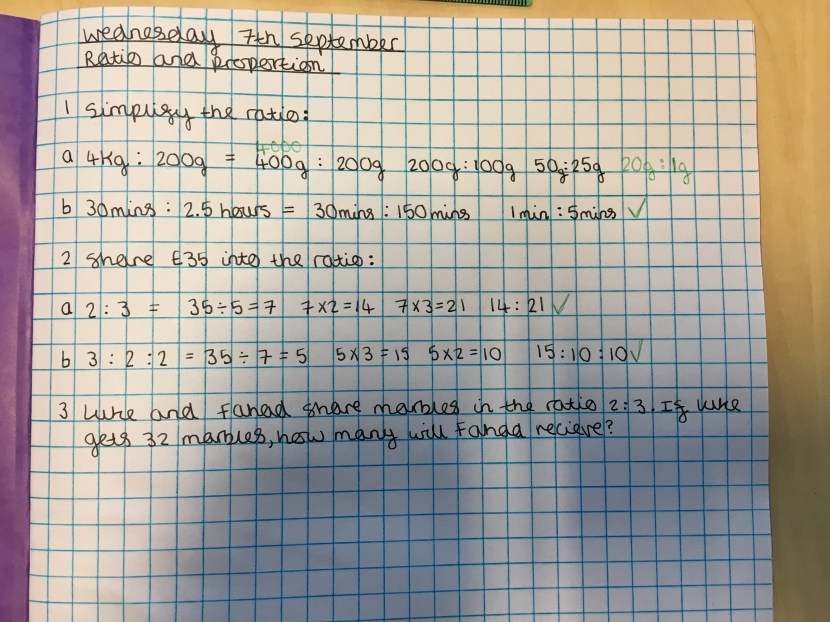 Wednesday 7th September
Ratio and proportion
1 Simplify the ratio:
4000
a 4Kg : 200g = 400g : 200g 200g : 100g 50g : 25g 20g : 1g
b 30mins : 2.5 hours = 30mins : 150mins 1min : 5mins ✓
2 Share £35 into the ratio:
a 2 : 3 = 35 ÷ 5 = 7 7 x 2 = 14 7 x 3 = 21 14 : 21 ✓
b 3 : 2 : 2 = 35 ÷ 7 = 5 5 x 3 = 15 5 x 2 = 10 15 : 10 : 10 ✓
3 Luke and Fahad share marbles in the ratio 2 : 3. If Luke
gets 32 marbles, how many will Fahad recieve?